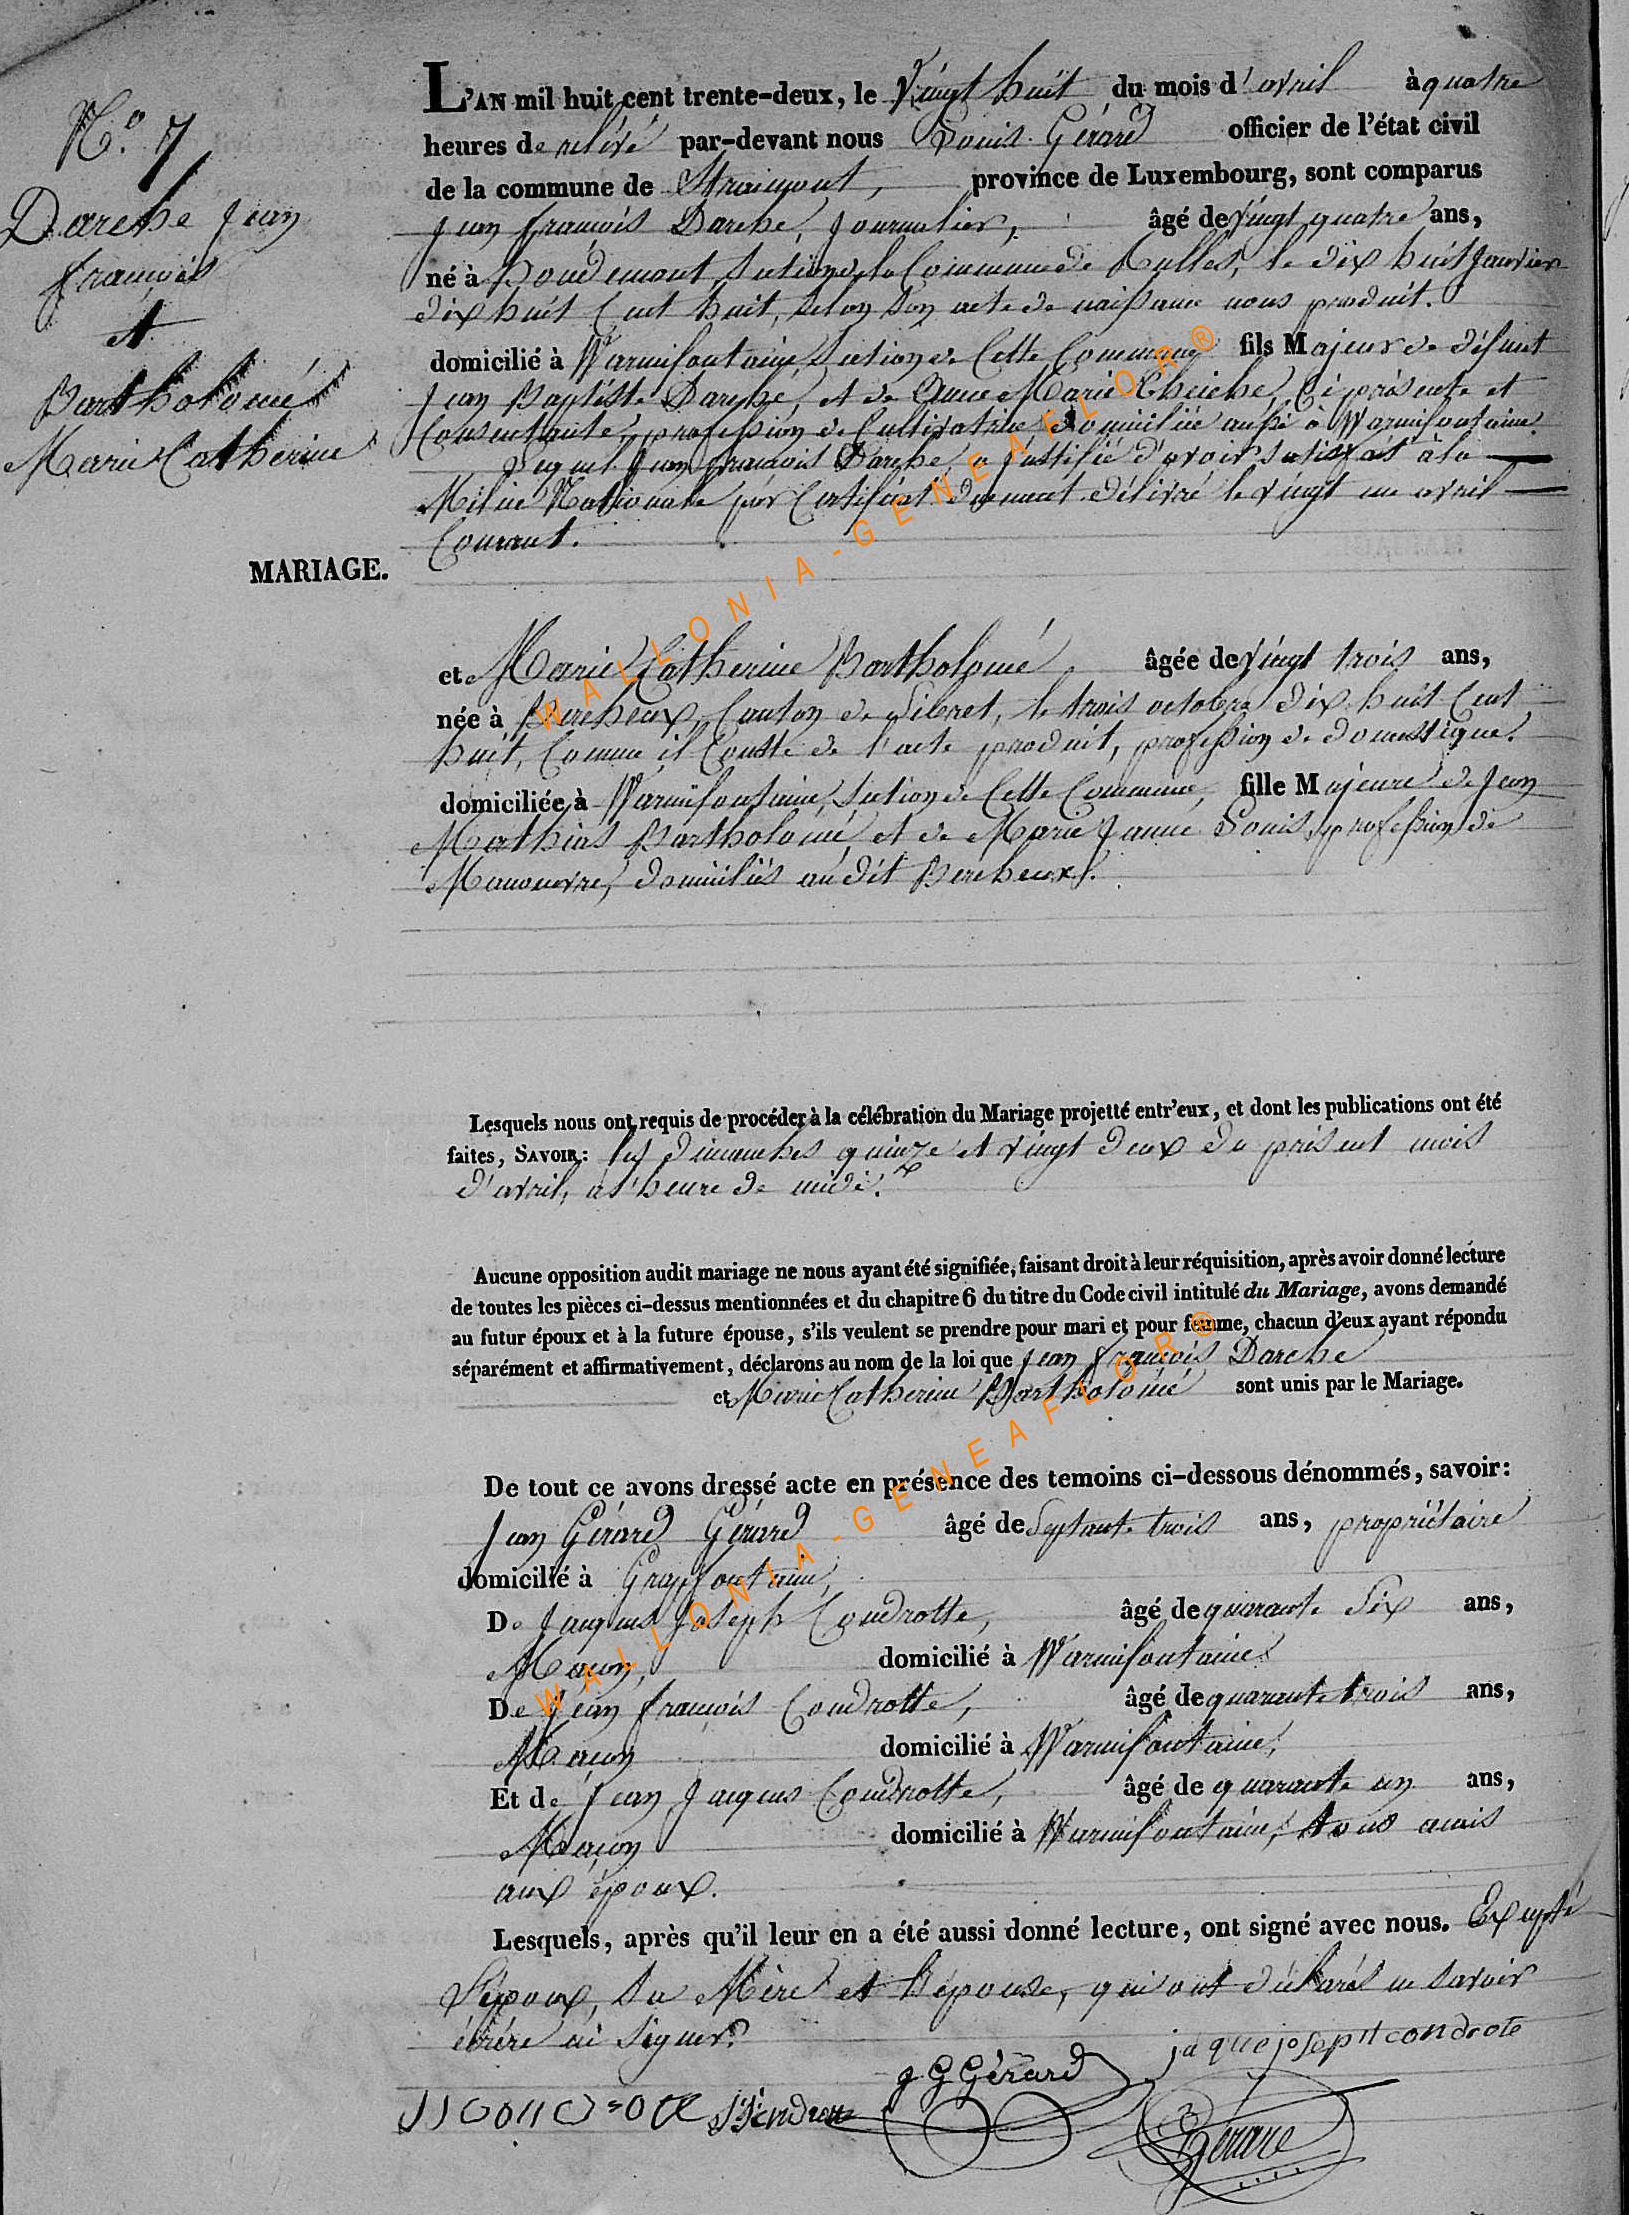 N.o 7
Darche Jean
françois
et
Bartholomé
Marie Catherine
MARIAGE.
L'AN mil huit cent trente-deux, le Vingt huit du mois d'avril à quatre
heures de relevé par-devant nous Louis Gérard officier de l'état civil
de la commune de Straimont, province de Luxembourg, sont comparus
Jean françois Darche, Journalier, âgé de Vingt quatre ans,
né à houdemont, Section de la Commune de Rulles, le dix huit Janvier
dix huit Cent huit, Selon Son acte de naissance nous produit.
domicilié à Warmifontaine Section de Cette Commune fils Majeur de défunt
Jean Baptiste Darche, et de Anne Marie Ci présente et
Consentante, profession de Cultivatrice domiciliée aussi à Warmifontaine.
Lequel Jean françois Darche a Justifié d'avoir Satisfait à la
Milice Nationale par Certificat dument délivré le vingt un avril
Courant.
et Marie Catherine Bartholomé âgée de Vingt trois ans,
née à Bercheux, Canton de Sibret, le trois octobre dix huit Cent
huit, Comme il Conste de l'acte produit, profession de domestique.
domiciliée à Warmifontaine, Section de Cette Commune, fille Majeure de Jean
Mathias Bartholomé et de Marie Jeanne Louis, profession de
Manouvre, domiciliés au dit Bercheux.
Lesquels nous ont requis de procéder à la célébration du Mariage projetté entr'eux, et dont les publications ont été
faites, SAVOIR: les dimanches quinze et vingt deux du présent mois
d'avril, à l'heure de midi.
Aucune opposition audit mariage ne nous ayant été signifiée, faisant droit à leur réquisition, après avoir donné lecture
de toutes les pièces ci-dessus mentionnées et du chapitre 6 du titre du Code civil intitulé du Mariage, avons demandé
au futur époux et à la future épouse, s'ils veulent se prendre pour mari et pour femme, chacun d'eux ayant répondu
séparément et affirmativement, déclarons au nom de la loi que Jean françois Darche
et Marie Catherine Bartholomé sont unis par le Mariage.
De tout ce avons dressé acte en présence des temoins ci-dessous dénommés, savoir:
Jean Gérard Gérard âgé de Septante trois ans, propriétaire
domicilié à Grapfontaine,
De Jacques Joseph Condrotte, âgé de quarante Six ans,
Maçon, domicilié à Warmifontaine
De Jean françois Condrotte, âgé de quarante trois ans,
Maçon domicilié à Warmifontaine,
Et de Jean Jacques Condrotte, âgé de quarante un ans,
Maçon domicilié à Warmifontaine, tous amis
aux époux.
Lesquels, après qu'il leur en a été aussi donné lecture, ont signé avec nous. Excepté
L'époux, Sa Mère et l'épouse, qui ont déclarés ne Savoir
écrire ni Signer.
jaque joseph condrote
g G Gérard
Gérard
WALLONIA-GENEAFLOR®
WALLONIA-GENEAFLOR®